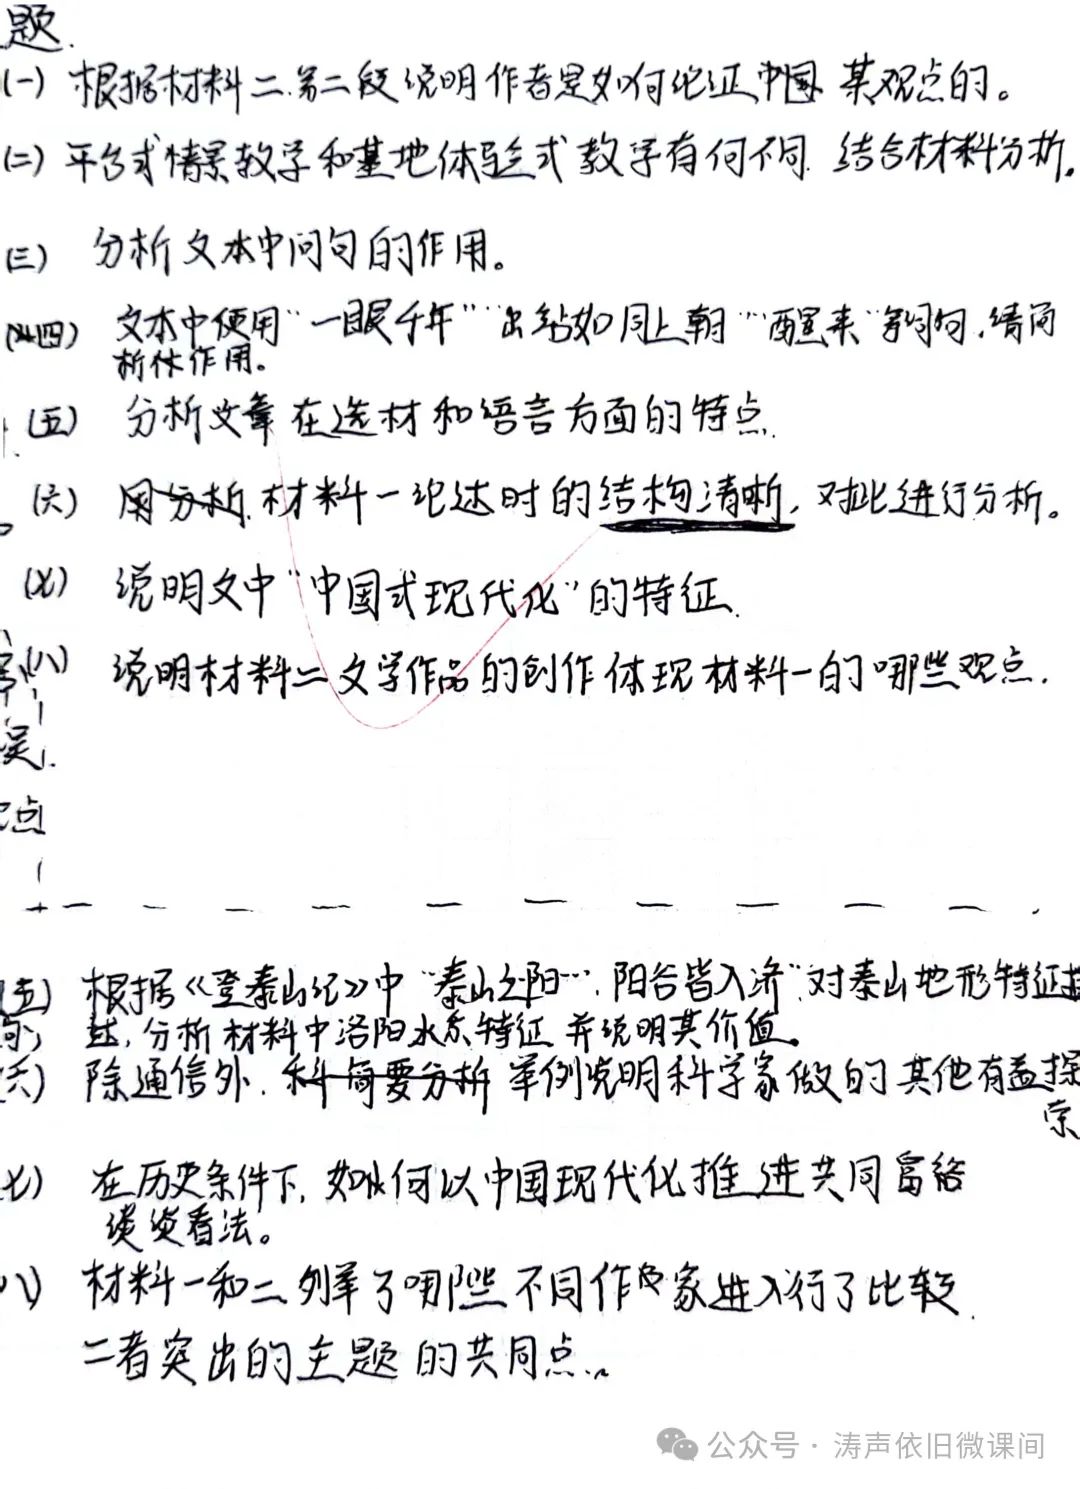 题.
(一) 根据材料二.第二段说明作者是如何论证中国 某观点的。
(二) 平台式情景教学和基地体验式教学有何不同. 结合材料分析.
(三) 分析文本中问句的作用。
(四) 文本中使用“一眼千年”“出站如同上朝”“醒来”等词句,请简
析其作用。
(五) 分析文章在选材和语言方面的特点.
(六) 材料一论述时的结构清晰,对此进行分析。
(七) 说明文中“中国式现代化”的特征.
(八) 说明材料二文学作品的创作体现材料一的哪些观点.
误.
点
(五) 根据《登泰山记》中“泰山之阳…,阳谷皆入济”对泰山地形特征描
述,分析材料中洛阳水系特征并说明其价值。
六) 除通信外. 科简要分析 举例说明科学家做的其他有益探
索
七) 在历史条件下,如何以中国现代化推进共同富裕
谈谈看法。
八) 材料一和二列举了哪些不同作家进行了比较.
二者突出的主题的共同点..
公众号 · 涛声依旧微课间